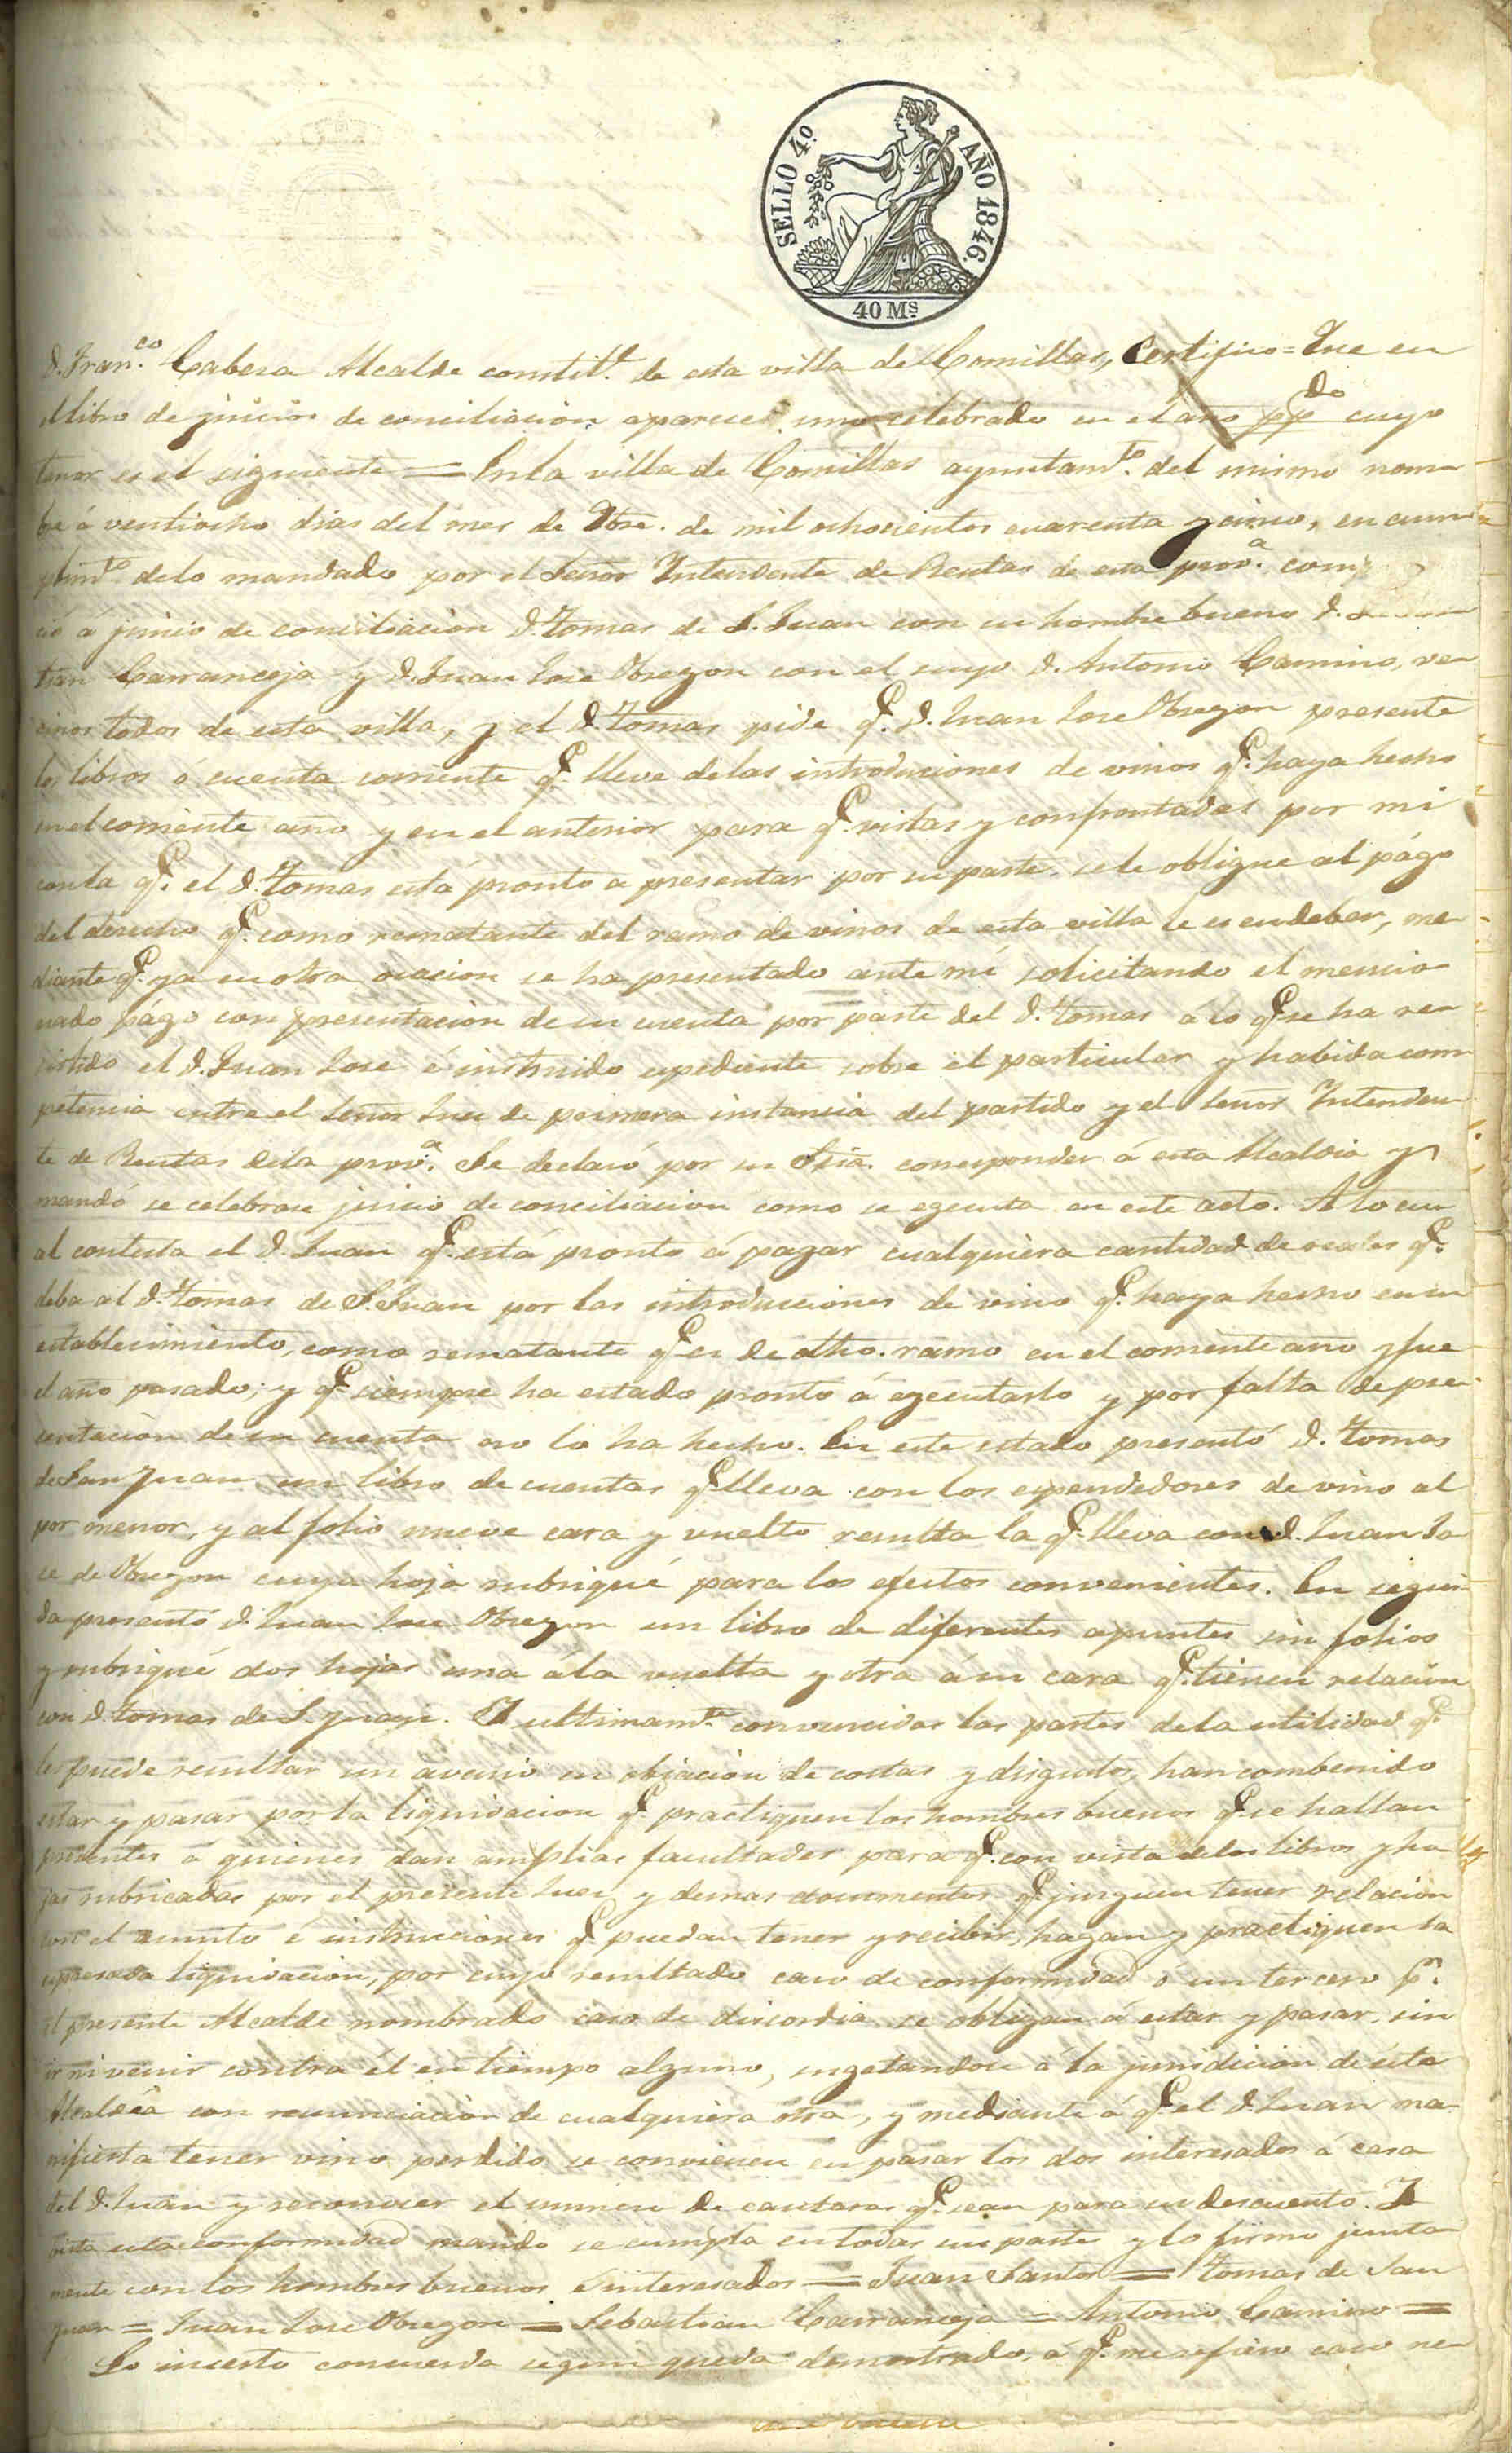 SELLO 4º. AÑO 1846.
40 Ms.
D. Fran.co Cabesa Alcalde constit.l de esta villa de Comillas, Certifico = Que en
el libro de juicios de conciliacion aparece uno celebrado en el año ppdo cuyo
tenor es el siguiente = En la villa de Comillas ayuntam.to del mismo nom-
bre á ventiocho dias del mes de de mil ochocientos cuarenta y cinco, en cum-
plim.to delo mandado por el Señor Intendente de Rentas de esta prov.a
ció á juicio de conciliacion D. Tomas de S. Juan con su hombre bueno D.
tian Carranceja y D. Juan Jose Obregon con el suyo D. Antonio Camino, ve-
cinos todos de esta villa, y el D. Tomas pide q.e D. Juan Jose Obregon presente
los libros o cuenta corriente q.e lleve delas introduciones de vinos q.e haya hecho
en el corriente año y en el anterior para q.e vistas y confrontadas por mi
con la q.e el D. Tomas está pronto a presentar por su parte, se le obligue al págo
del derecho q.e como rematante del ramo de vinos de esta villa le es en deber, me-
diante q.e ya en otra ocacion se ha presentado ante mí solicitando el mencio-
nado págo con presentacion de su cuenta por parte del D. Tomas á lo q.e se ha re-
sistido el D. Juan Jose é instruido espediente sobre el particular y habida com-
petencia entre el Señor Juez de primera instancia del partido y el Señor Intenden-
te de Rentas dela prov.a Se declaró por su Sria. corresponder á esta Alcaldia y
mandó se celebrase juicio de conciliacion como se egecuta en este acto. A lo cu-
al contesta el D. Juan q.e está pronto á pagar cualquiera cantidad de reales q.e
deba al D. Tomas de S. Juan por las introducciones de vino q.e haya hecho en su
establecimiento, como rematante q.e es de dho. ramo en el corriente año y fue
el año pasado; y q.e siempre ha estado pronto á egecutarlo y por falta de pre-
sentacion de su cuenta no lo ha hecho. En este estado presentó D. Tomas
de San Juan un libro de cuentas q.e lleva con los espendedores de vino al
por menor, y al folio nueve cara y vuelto resulta la q.e lleva con D. Juan Jo-
se de Obregon cuya hoja rubriqué para los efectos convenientes. En segui-
da presentó D. Juan Jose Obregon un libro de diferentes apuntes sin folios
y rubriqué dos hojas una á la vuelta y otra á su cara q.e tienen relacion
con D. Tomas de S. Juan. Y ultimam.te convencidas las partes dela utilidad q.e
les puede resultar un avenio en obiacion de costas y disgustos, han combenido
estar y pasar por la liquidacion q.e practiquen los hombres buenos q.e se hallan
presentes á quienes dan amplias facultades para q.e con vista delos libros y ho-
jas rubricadas por el presente Juez y demas documentos q.e juzguen tener relacion
con el asunto é instrucciones q.e puedan tener y recibir, hagan y practiquen la
espresada liquidacion, por cuyo resultado caso de conformidad ó un tercero p.r
el presente Alcalde nombrado caso de discordia se obligan á estar y pasar, sin
ir ni venir contra él en tiempo alguno, sugetandose á la juridicion de esta
Alcaldia con renunciacion de cualquiera otra, y mediante á q.e el D. Juan ma-
nifiesta tener vino perdido se convienen en pasar los dos interesados á casa
del D. Juan y reconocer el numero de cantaras q.e sean para su descuento. Y
vista esta conformidad mando se cumpla en todas sus parte y lo firmo junta-
mente con los hombres buenos é interesados = Juan Santos = Tomas de San
Juan = Juan Jose Obregon = Sebastian Carranceja = Antonio Camino =
Lo inserto concuerda segun queda demostrado, á q.e me refiero caso ne-